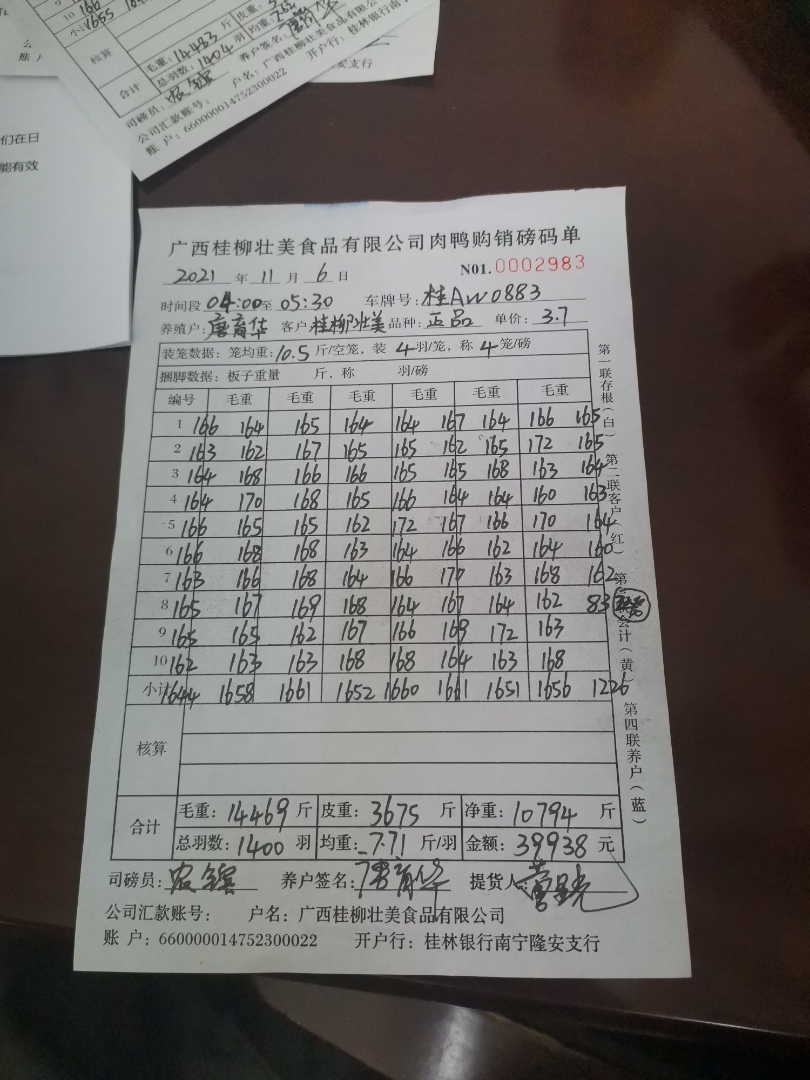 10 166
小计1655
核算
毛重：14483 斤 皮重：
总羽数：1404 羽 均重：
合计
养户签名：
司磅员：
户名：广西桂柳壮美食品有限公司
公司汇款账号：
开户行：桂林银行南宁
账 户：660000014752300022
安支行
么
账 户
们在日
能有效
广西桂柳壮美食品有限公司肉鸭购销磅码单
2021 年 11 月 6 日 N01.0002983
时间段 04:00至 05:30 车牌号：桂AW0883
养殖户：唐育华 客户 桂柳壮美 品种：正品 单价：3.7
装笼数据：笼均重：10.5 斤/空笼，装 4羽/笼，称 4笼/磅
捆脚数据：板子重量 斤，称 羽/磅
编号 毛重 毛重 毛重 毛重 毛重 毛重
1 166 164 165 164 164 167 164 166 165
2 163 162 167 165 165 162 165 172 165
3 164 168 166 166 165 165 168 163 164
4 164 170 168 165 166 164 164 160 163
5 166 165 165 162 172 167 166 170 164
6 166 168 168 163 164 166 162 164 160
7 163 166 168 164 166 170 163 168 162
8 165 167 169 168 164 167 164 162 83
9 165 165 162 167 166 169 172 163
10 162 163 163 168 168 164 163 168
小计1644 1658 1661 1652 1660 1661 1651 1656 1226
核算
合计
毛重：14469 斤 皮重：3675 斤 净重：10794 斤
总羽数：1400 羽 均重：7.71 斤/羽 金额：39938 元
司磅员： 养户签名：唐育华 提货人：
公司汇款账号： 户名：广西桂柳壮美食品有限公司
账 户：660000014752300022 开户行：桂林银行南宁隆安支行
第一联存根（白） 第二联客户（红） 第三联会计（黄） 第四联养户（蓝）